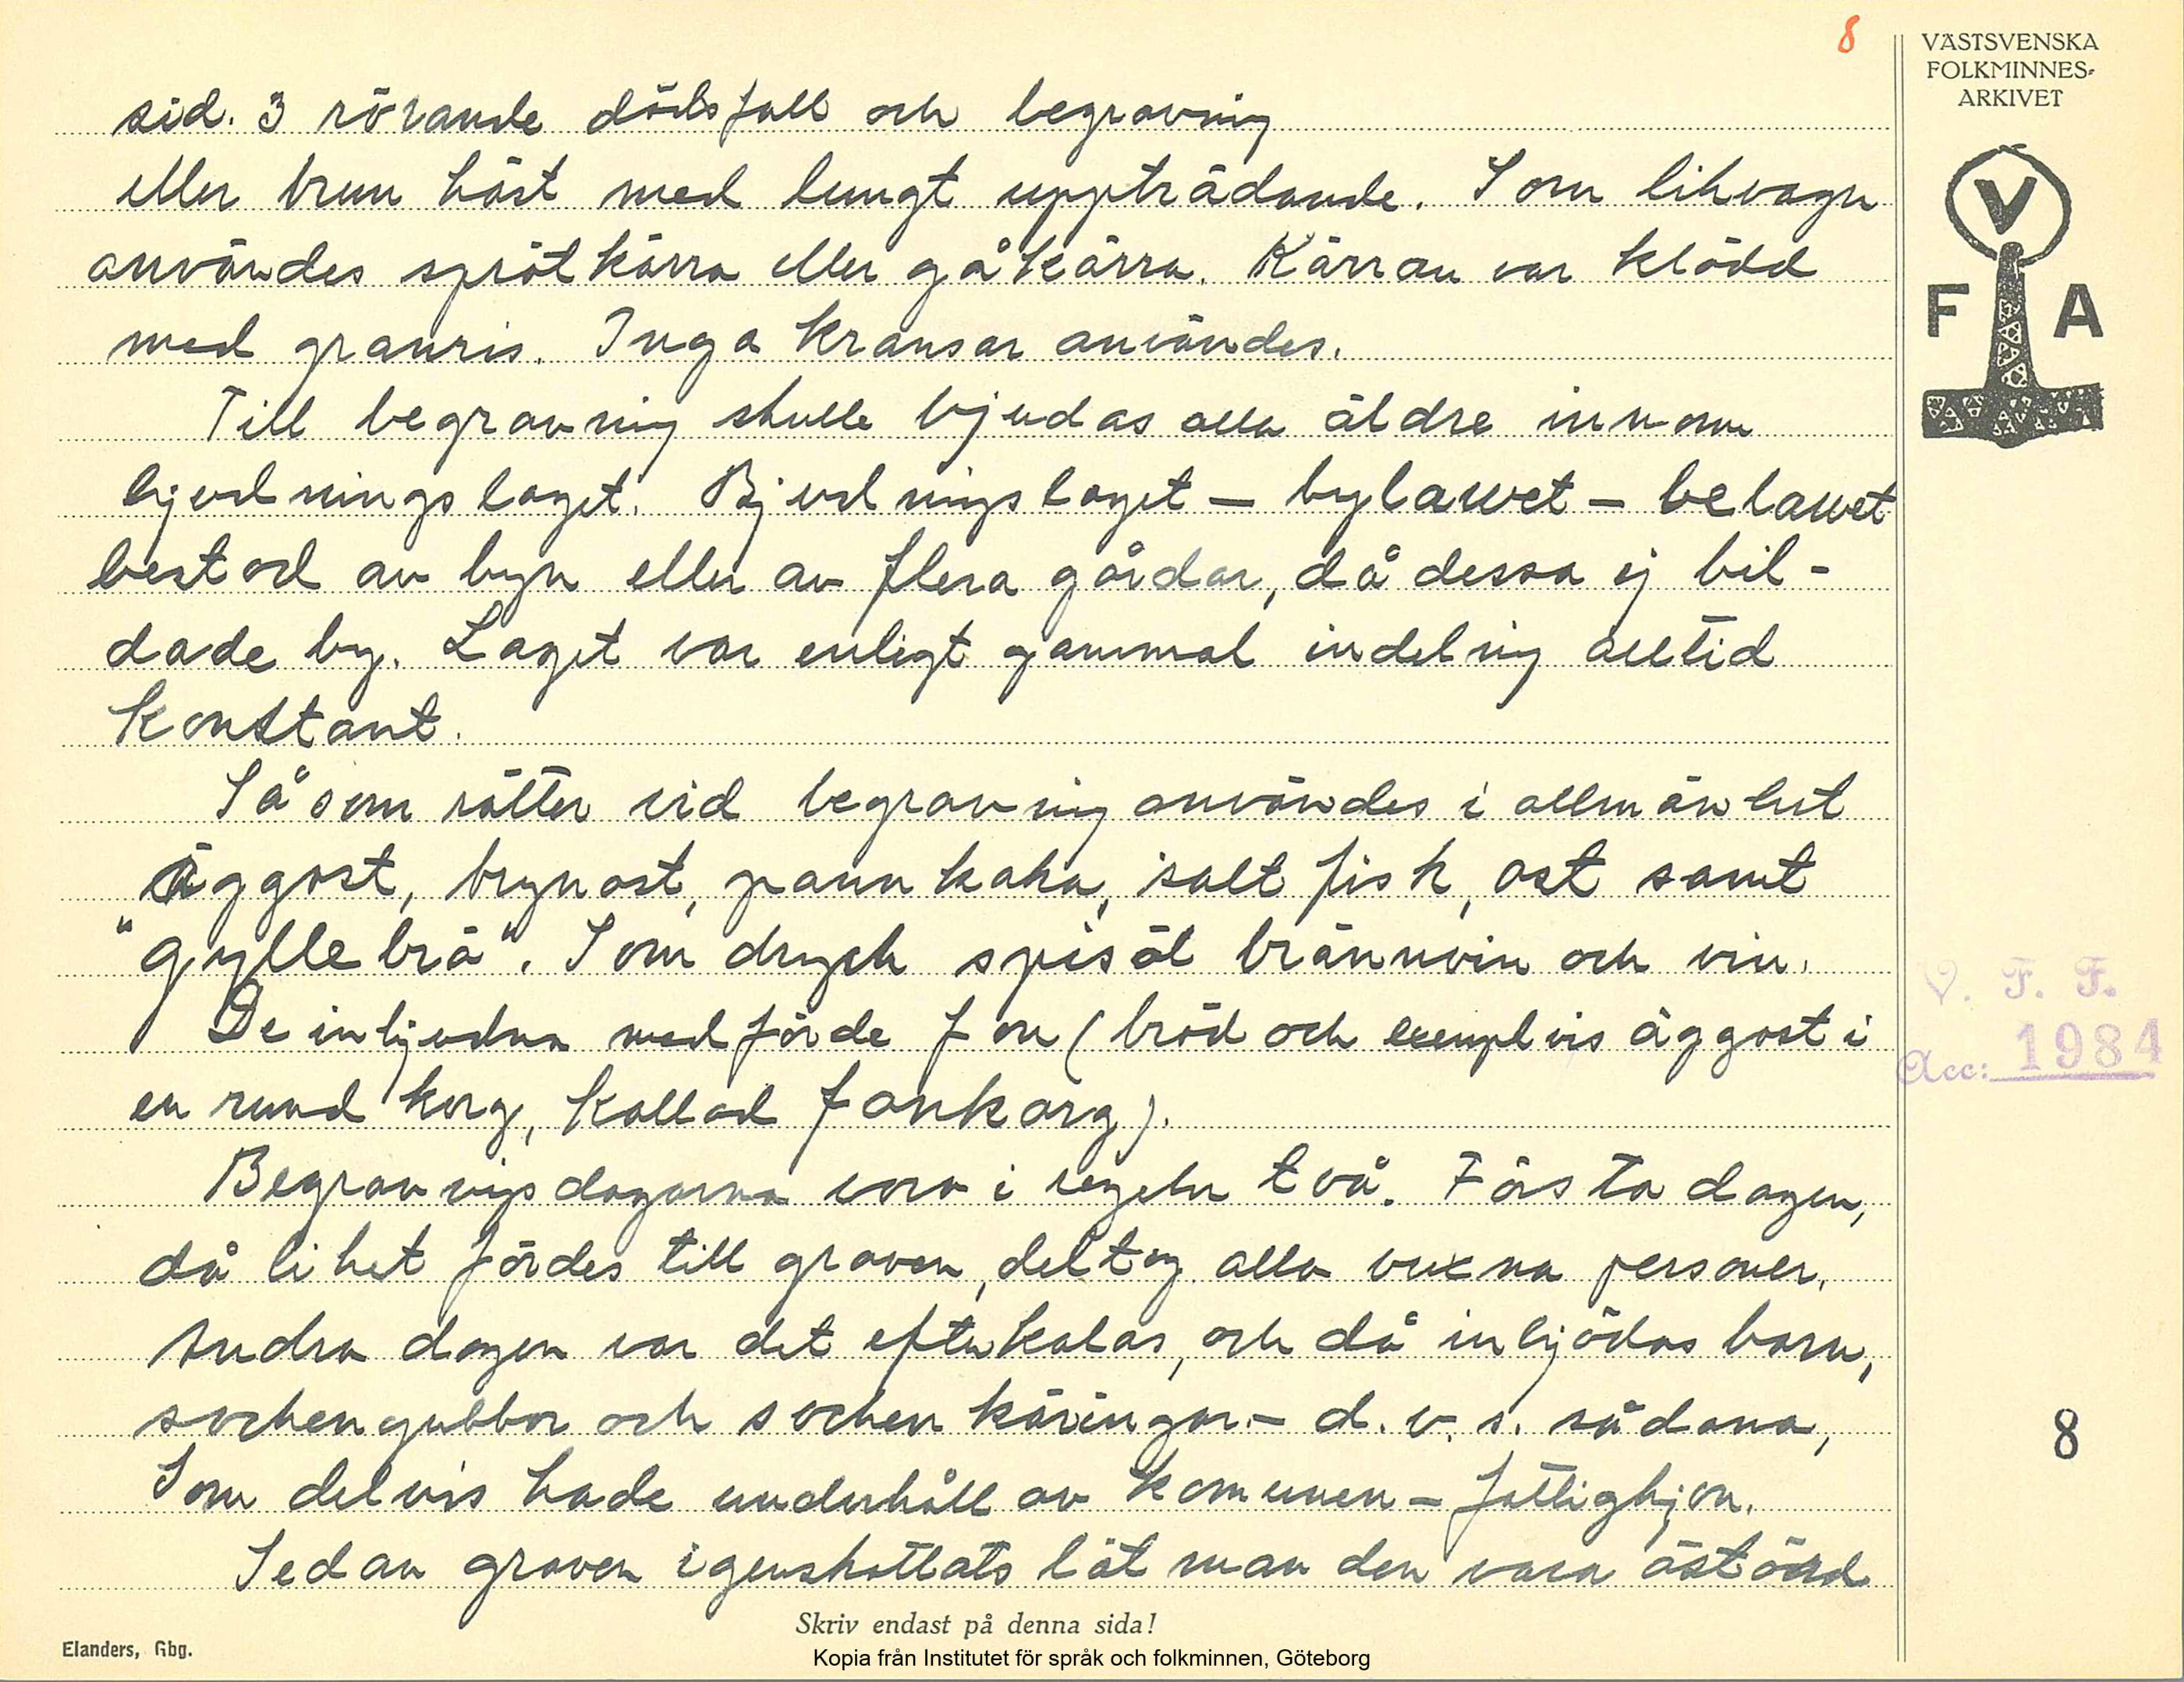 8
VÄSTSVENSKA
FOLKMINNES-
ARKIVET
V
F A
sid. 3 rörande dödsfall och begravning
eller brun häst med lungt uppträdande. Som likvagn
användes sprötkärra eller gåkärra. Kärran var klädd
med granris. Inga kransar användes.
Till begravning skulle bjudas alla äldre innom
bjudningslaget. Bjudningslaget – bylawet – belawet
bestod av byn eller av flera gårdar, då dessa ej bil-
dade by. Laget var enligt gammal indelning alltid
konstant.
Såsom rätter vid begravning användes i allmänhet
äggost, brynost, pannkaka, salt fisk, ost samt
"gyllebrä". Som dryck spisöl brännvin och vin.
De inbjudna medförde fon (bröd och exempelvis äggost i
en rund korg, kallad fonkorg).
Begravnigsdagarna vora i regeln två. Första dagen,
då liket fördes till graven, deltog alla vuxna personer.
Andra dagen var det efterkalas, och då inbjödos barn,
sockengubbor och sockenkäringar – d. v. s. sådana,
Som delvis hade underhåll av komunen – fattighjon.
Sedan graven igenskottats lät man den vara ostörd
V. F. F.
Acc: 1984
8
Skriv endast på denna sida!
Elanders, Gbg.
Kopia från Institutet för språk och folkminnen, Göteborg